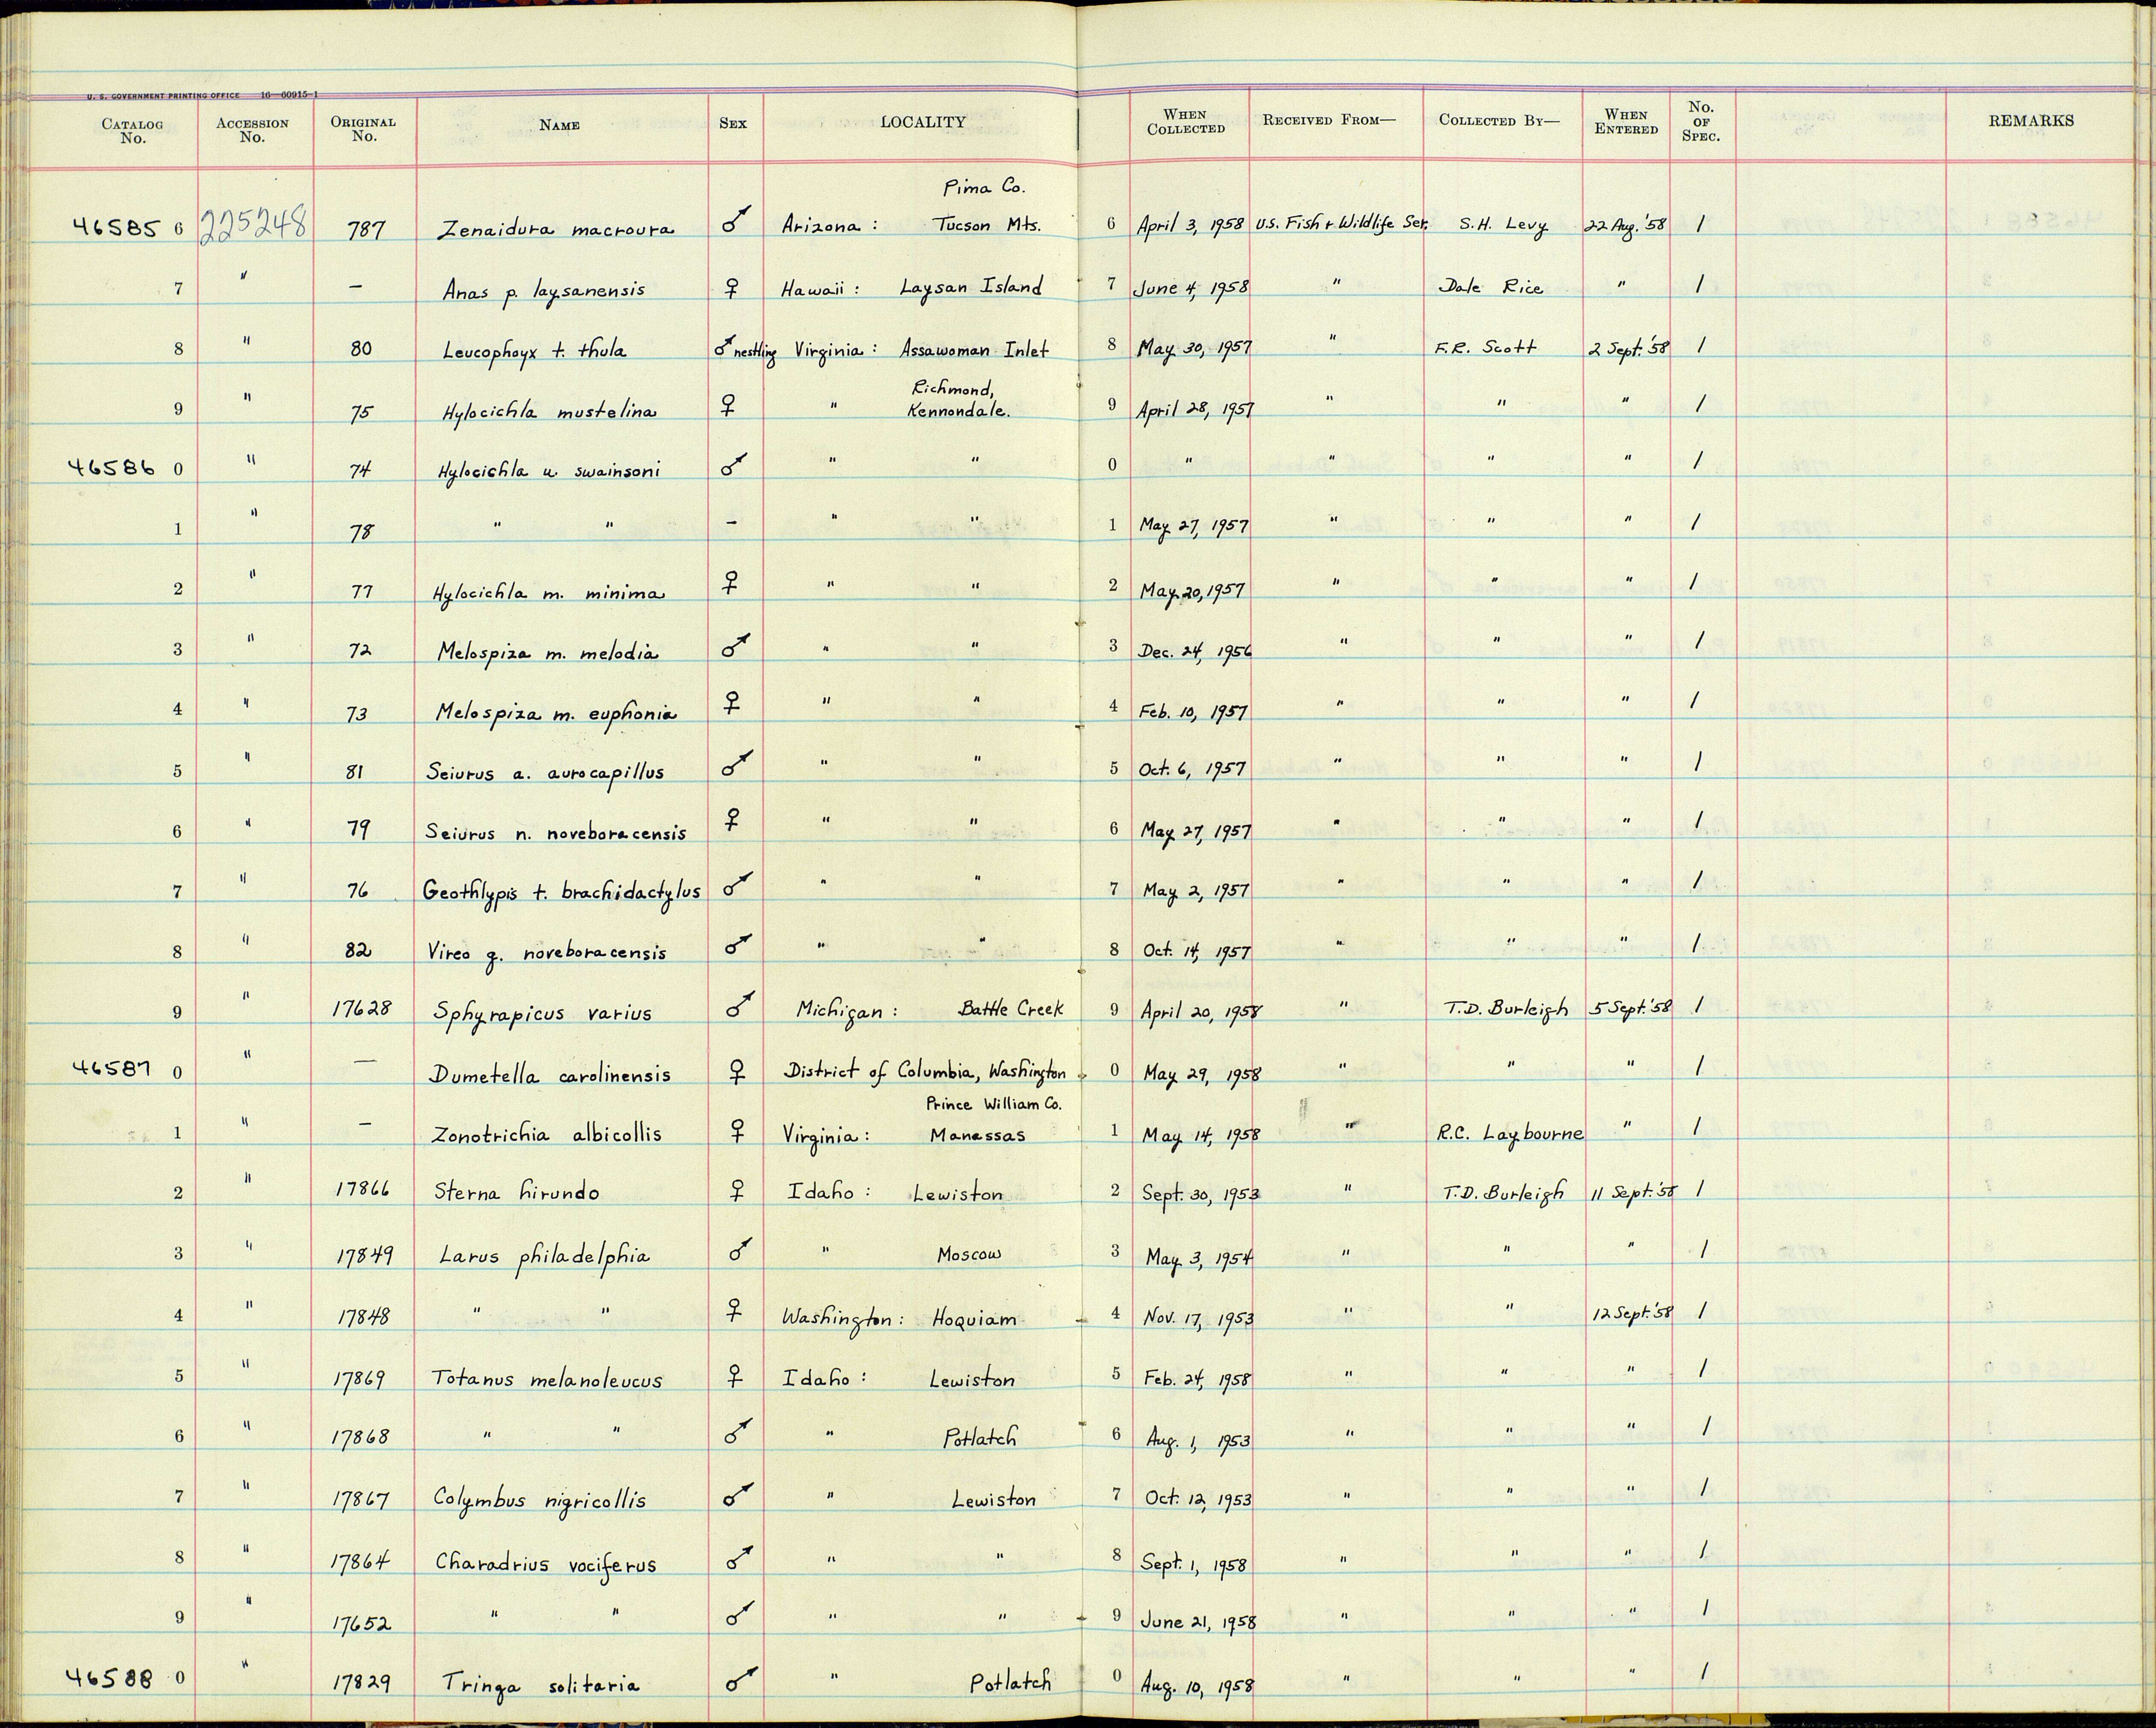 U. S. GOVERNMENT PRINTING OFFICE 16—60915-1
CATALOG No. ACCESSION No. ORIGINAL No. NAME SEX LOCALITY WHEN COLLECTED RECEIVED FROM— COLLECTED BY— WHEN ENTERED No. OF SPEC. REMARKS
Pima Co.
46585 6 225248 787 Zenaidura macroura ♂ Arizona : Tucson Mts. 6 April 3, 1958 U.S. Fish + Wildlife Ser. S.H. Levy 22 Aug. '58 1
7 " — Anas p. laysanensis ♀ Hawaii : Laysan Island 7 June 4, 1958 " Dale Rice " 1
8 " 80 Leucophoyx t. thula ♂ nestling Virginia : Assawoman Inlet 8 May 30, 1957 " F.R. Scott 2 Sept. '58 1
Richmond,
9 " 75 Hylocichla mustelina ♀ " Kennondale. 9 April 28, 1957 " " " 1
46586 0 " 74 Hylocichla u. swainsoni ♂ " " 0 " " " " 1
1 " 78 " " — " " 1 May 27, 1957 " " " 1
2 " 77 Hylocichla m. minima ♀ " " 2 May 20, 1957 " " " 1
3 " 72 Melospiza m. melodia ♂ " " 3 Dec. 24, 1956 " " " 1
4 " 73 Melospiza m. euphonia ♀ " " 4 Feb. 10, 1957 " " " 1
5 " 81 Seiurus a. aurocapillus ♂ " " 5 Oct. 6, 1957 " " " 1
6 " 79 Seiurus n. noveboracensis ♀ " " 6 May 27, 1957 " " " 1
7 " 76 Geothlypis t. brachidactylus ♂ " " 7 May 2, 1957 " " " 1
8 " 82 Vireo g. noveboracensis ♂ " " 8 Oct. 14, 1957 " " " 1
9 " 17628 Sphyrapicus varius ♂ Michigan : Battle Creek 9 April 20, 1958 " T.D. Burleigh 5 Sept. '58 1
46587 0 " — Dumetella carolinensis ♀ District of Columbia, Washington 0 May 29, 1958 " " " 1
Prince William Co.
1 " — Zonotrichia albicollis ♀ Virginia : Manassas 1 May 14, 1958 " R.C. Laybourne " 1
2 " 17866 Sterna hirundo ♀ Idaho : Lewiston 2 Sept. 30, 1953 " T.D. Burleigh 11 Sept. '58 1
3 " 17849 Larus philadelphia ♂ " Moscow 3 May 3, 1954 " " " 1
4 " 17848 " " ♀ Washington : Hoquiam 4 Nov. 17, 1953 " " 12 Sept. '58 1
5 " 17869 Totanus melanoleucus ♀ Idaho : Lewiston 5 Feb. 24, 1958 " " " 1
6 " 17868 " " ♂ " Potlatch 6 Aug. 1, 1953 " " " 1
7 " 17867 Colymbus nigricollis ♂ " Lewiston 7 Oct. 12, 1953 " " " 1
8 " 17864 Charadrius vociferus ♂ " " 8 Sept. 1, 1958 " " " 1
9 " 17652 " " ♂ " " 9 June 21, 1958 " " " 1
46588 0 " 17829 Tringa solitaria ♂ " Potlatch 0 Aug. 10, 1958 " " " 1